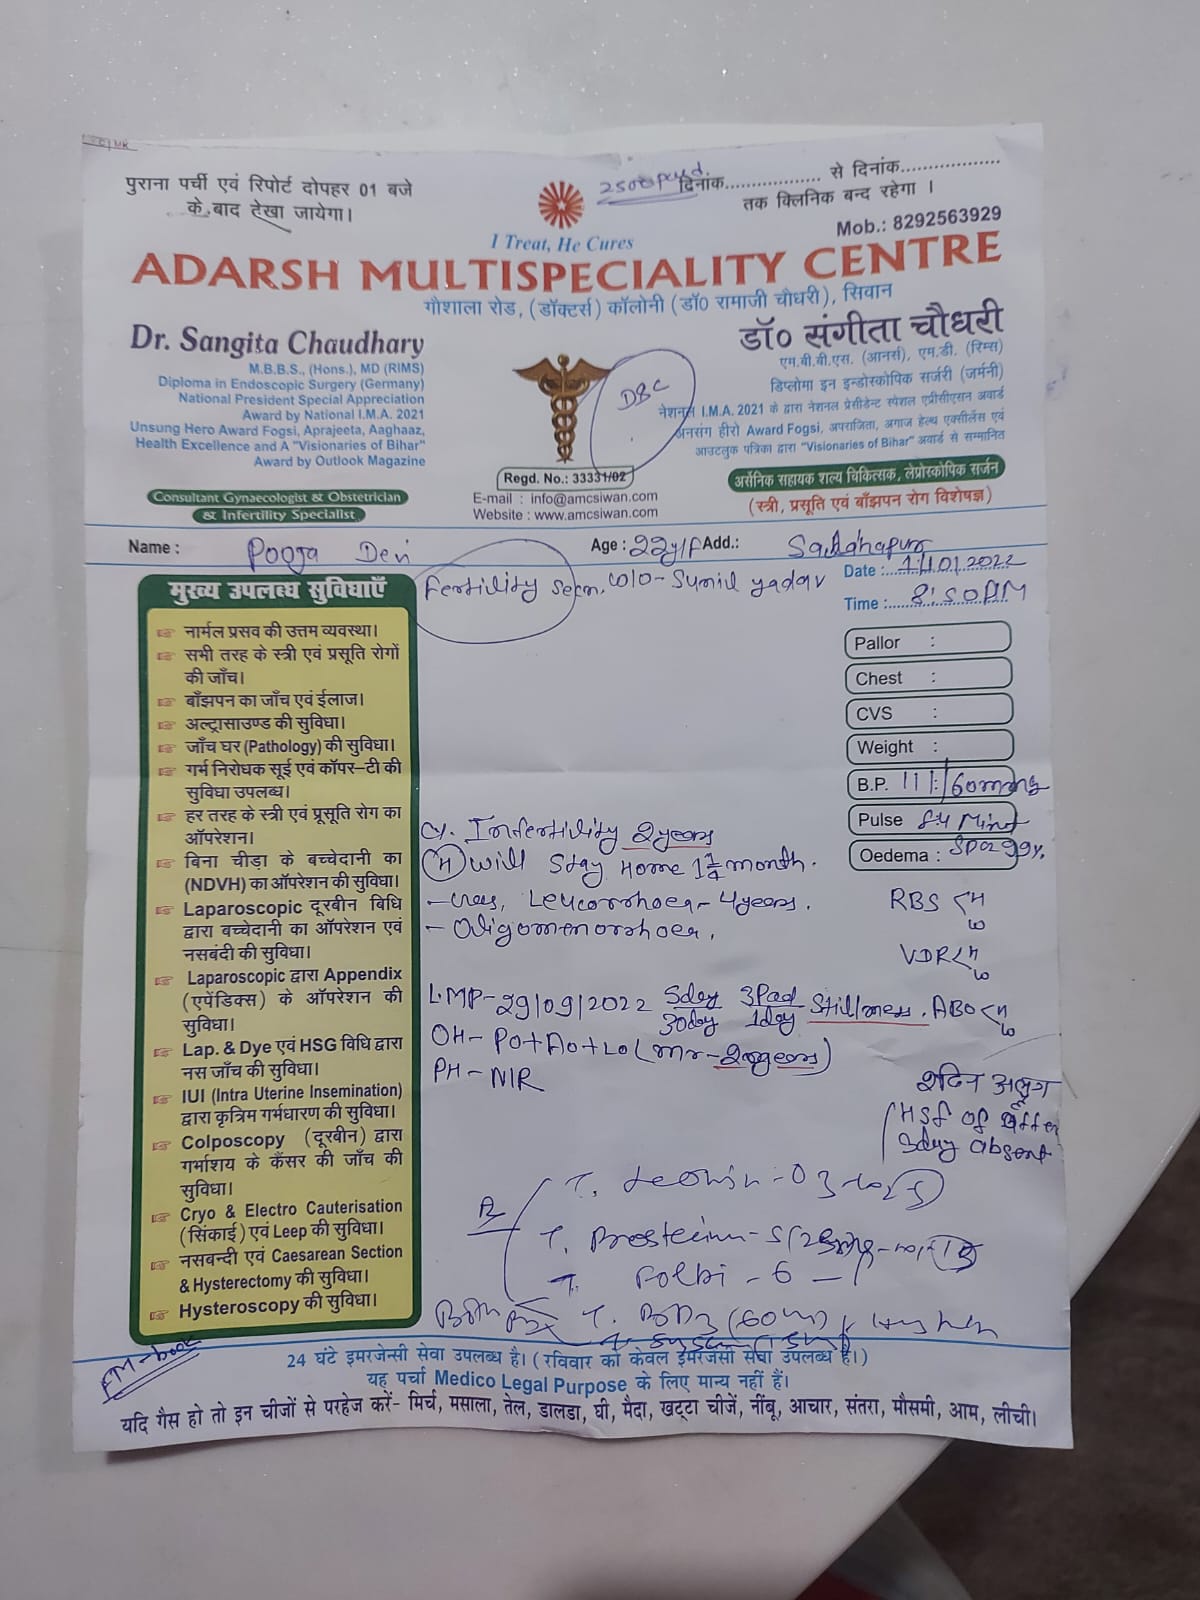 पुराना पर्ची एवं रिपोर्ट दोपहर 01 बजे
के बाद देखा जायेगा।
दिनांक.................. से दिनांक..................
तक क्लिनिक बन्द रहेगा ।
Mob.: 8292563929
I Treat, He Cures
ADARSH MULTISPECIALITY CENTRE
गौशाला रोड, (डॉक्टर्स) कॉलोनी (डॉ0 रामाजी चौधरी), सिवान
Dr. Sangita Chaudhary
M.B.B.S., (Hons.), MD (RIMS)
Diploma in Endoscopic Surgery (Germany)
National President Special Appreciation
Award by National I.M.A. 2021
Unsung Hero Award Fogsi, Aprajeeta, Aaghaaz,
Health Excellence and A "Visionaries of Bihar"
Award by Outlook Magazine
Consultant Gynaecologist & Obstetrician
& Infertility Specialist
Regd. No.: 33331/02
E-mail : info@amcsiwan.com
Website : www.amcsiwan.com
डॉ0 संगीता चौधरी
एम.बी.बी.एस. (आनर्स), एम.डी. (रिम्स)
डिप्लोमा इन इन्डोस्कोपिक सर्जरी (जर्मनी)
नेशनल I.M.A. 2021 के द्वारा नेशनल प्रेसीडेन्ट स्पेशल एप्रीसीएसन अवार्ड
अनसंग हीरो Award Fogsi, अपराजिता, अगाज हेल्थ एक्सीलेंस एवं
आउटलुक पत्रिका द्वारा "Visionaries of Bihar" अवार्ड से सम्मानित
अर्सेनिक सहायक शल्य चिकित्सक, लेप्रोस्कोपिक सर्जन
(स्त्री, प्रसूति एवं बाँझपन रोग विशेषज्ञ)
Name : Pooja Devi Age : 22y/F Add.:
Fertility W/O- Sunil yadav
Date :
Time : 8:50PM
मुख्य उपलब्ध सुविधाएँ
नार्मल प्रसव की उत्तम व्यवस्था।
सभी तरह के स्त्री एवं प्रसूति रोगों
की जाँच।
बाँझपन का जाँच एवं ईलाज।
अल्ट्रासाउण्ड की सुविधा।
जाँच घर (Pathology) की सुविधा।
गर्भ निरोधक सूई एवं कॉपर-टी की
सुविधा उपलब्ध।
हर तरह के स्त्री एवं प्रसूति रोग का
ऑपरेशन।
बिना चीड़ा के बच्चेदानी का
(NDVH) का ऑपरेशन की सुविधा।
Laparoscopic दूरबीन विधि
द्वारा बच्चेदानी का ऑपरेशन एवं
नसबंदी की सुविधा।
Laparoscopic द्वारा Appendix
(एपेंडिक्स) के ऑपरेशन की
सुविधा।
Lap. & Dye एवं HSG विधि द्वारा
नस जाँच की सुविधा।
IUI (Intra Uterine Insemination)
द्वारा कृत्रिम गर्भधारण की सुविधा।
Colposcopy (दूरबीन) द्वारा
गर्भाशय के कैंसर की जाँच की
सुविधा।
Cryo & Electro Cauterisation
(सिंकाई) एवं Leep की सुविधा।
नसबन्दी एवं Caesarean Section
& Hysterectomy की सुविधा।
Hysteroscopy की सुविधा।
Pallor :
Chest :
CVS :
Weight :
B.P. 111/60mmHg
Pulse
Oedema :
Infertility 2years
(H) will stay Home 1 month.
Leucorrhoea - 4years.
- Oligomenorrhoea.
LMP-29/09/2022 5day 3Pad
30day 1day
OH- P0+A0+L0
PH- NIR
RBS < H W
VDR < H W
ABO < H W
3day absent
24 घंटे इमरजेन्सी सेवा उपलब्ध है। (रविवार को केवल इमरजेंसी सेवा उपलब्ध है।)
यह पर्चा Medico Legal Purpose के लिए मान्य नहीं हैं।
यदि गैस हो तो इन चीजों से परहेज करें- मिर्च, मसाला, तेल, डालडा, घी, मैदा, खट्टा चीजें, नींबू, आचार, संतरा, मौसमी, आम, लीची।